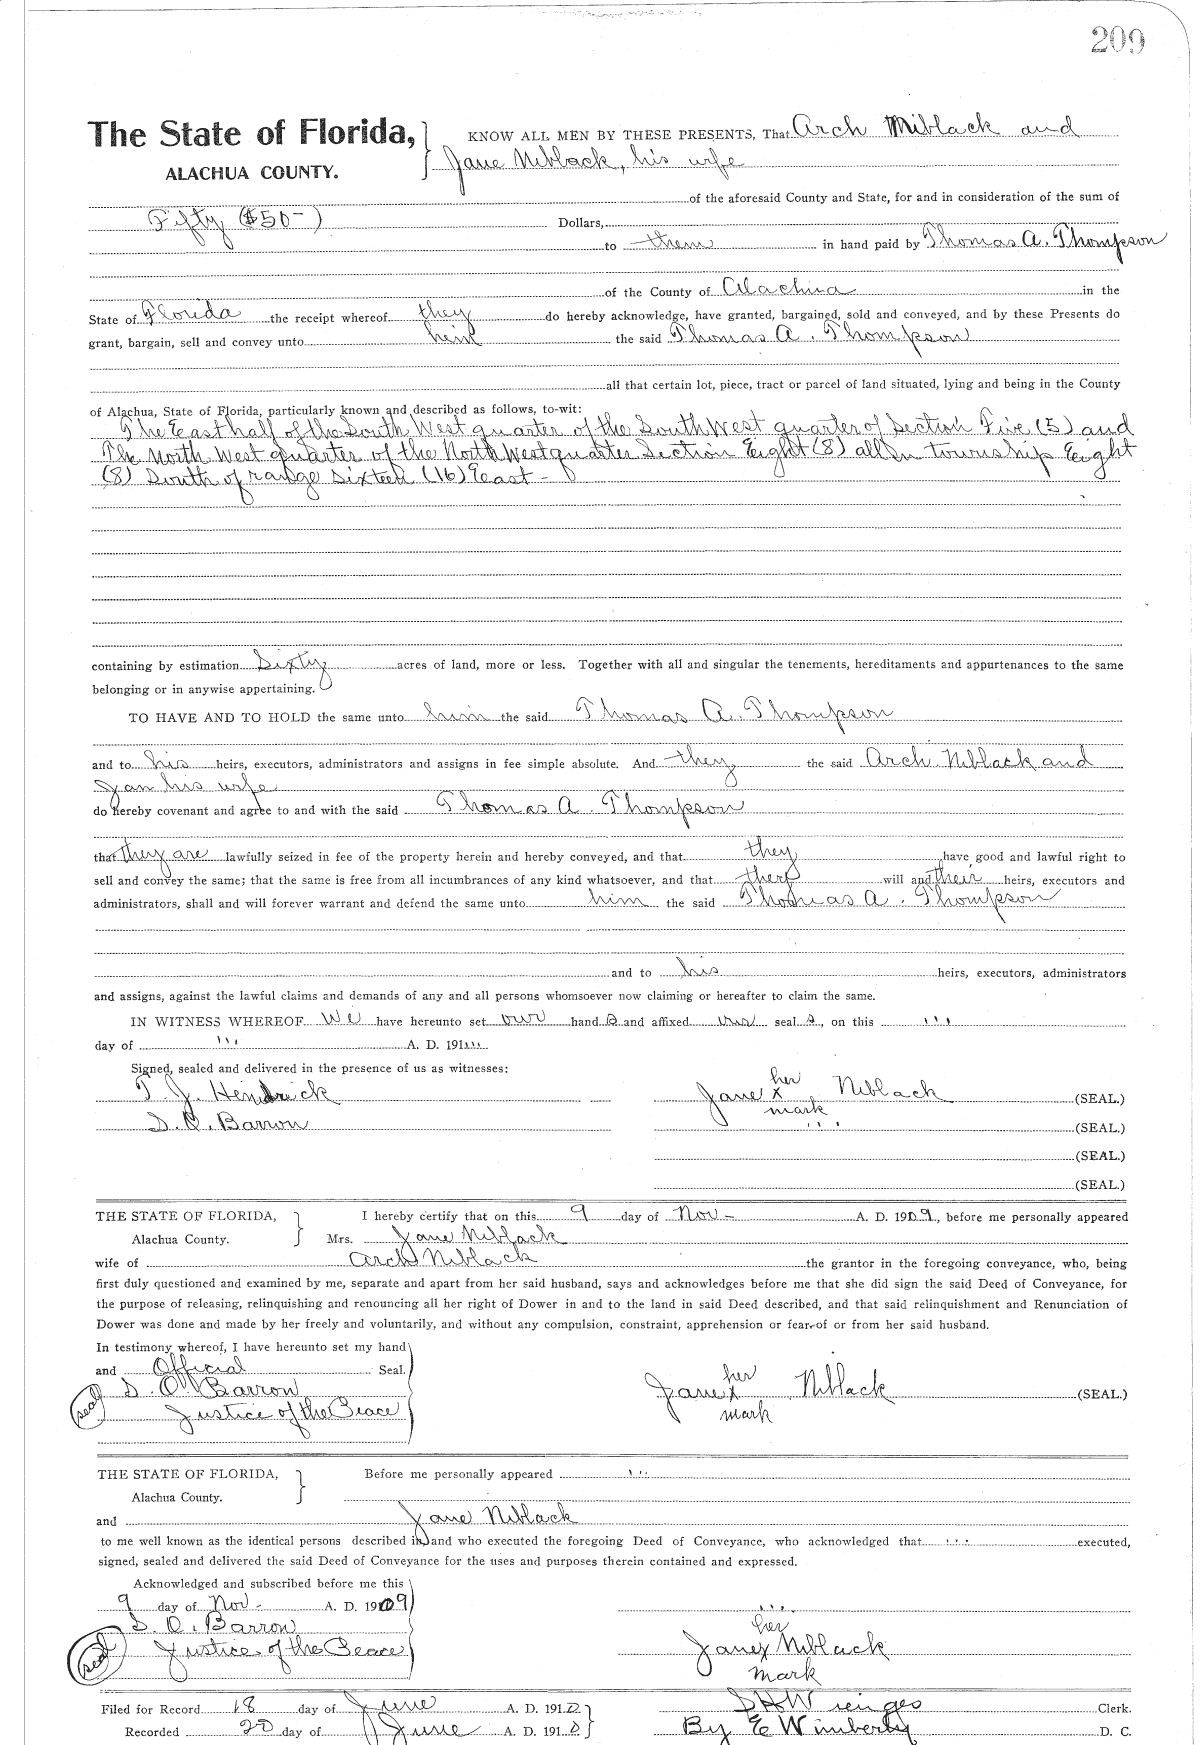 209
The State of Florida, KNOW ALL MEN BY THESE PRESENTS, That Arch Niblack and
ALACHUA COUNTY. Jane Niblack, his wife
of the aforesaid County and State, for and in consideration of the sum of
Fifty ($50-) Dollars,
to them in hand paid by Thomas A. Thompson
of the County of Alachua in the
State of Florida the receipt whereof they do hereby acknowledge, have granted, bargained, sold and conveyed, and by these Presents do
grant, bargain, sell and convey unto him the said Thomas A. Thompson
all that certain lot, piece, tract or parcel of land situated, lying and being in the County
of Alachua, State of Florida, particularly known and described as follows, to-wit:
The East half of the South West quarter of the South West quarter of Section Five (5) and
The North West quarter of the North West quarter Section Eight (8) all In township Eight
(8) South of range Sixteen (16) East -
containing by estimation Sixty acres of land, more or less. Together with all and singular the tenements, hereditaments and appurtenances to the same
belonging or in anywise appertaining.
TO HAVE AND TO HOLD the same unto him the said Thomas A. Thompson
and to his heirs, executors, administrators and assigns in fee simple absolute. And they the said Arch Niblack and
Jan his wife
do hereby covenant and agree to and with the said Thomas A. Thompson
that they are lawfully seized in fee of the property herein and hereby conveyed, and that they have good and lawful right to
sell and convey the same; that the same is free from all incumbrances of any kind whatsoever, and that they will and their heirs, executors and
administrators, shall and will forever warrant and defend the same unto him the said Thomas A. Thompson
and to his heirs, executors, administrators
and assigns, against the lawful claims and demands of any and all persons whomsoever now claiming or hereafter to claim the same.
IN WITNESS WHEREOF We have hereunto set our hand s and affixed our seal s, on this ' ' '
day of ' ' ' A. D. 191
Signed, sealed and delivered in the presence of us as witnesses:
T. J. Hendrick Jane her x mark Niblack (SEAL.)
S. O. Barron ' ' ' (SEAL.)
(SEAL.)
(SEAL.)
THE STATE OF FLORIDA, I hereby certify that on this 9 day of Nov - A. D. 1909, before me personally appeared
Alachua County. Mrs. Jane Niblack
wife of Arch Niblack the grantor in the foregoing conveyance, who, being
first duly questioned and examined by me, separate and apart from her said husband, says and acknowledges before me that she did sign the said Deed of Conveyance, for
the purpose of releasing, relinquishing and renouncing all her right of Dower in and to the land in said Deed described, and that said relinquishment and Renunciation of
Dower was done and made by her freely and voluntarily, and without any compulsion, constraint, apprehension or fear of or from her said husband.
In testimony whereof, I have hereunto set my hand
and Official Seal.
S. O. Barron Jane her x mark Niblack (SEAL.)
seal Justice of the Peace
THE STATE OF FLORIDA, Before me personally appeared ' ' '
Alachua County.
and Jane Niblack
to me well known as the identical persons described in and who executed the foregoing Deed of Conveyance, who acknowledged that ' ' ' executed,
signed, sealed and delivered the said Deed of Conveyance for the uses and purposes therein contained and expressed.
Acknowledged and subscribed before me this
9 day of Nov - A. D. 1909 ' ' '
S. O. Barron
seal Justice of the Peace Jane her x mark Niblack
Filed for Record 18 day of June A. D. 1910 S H Wienges Clerk.
Recorded 20 day of June A. D. 1910 By E Wimberly D. C.